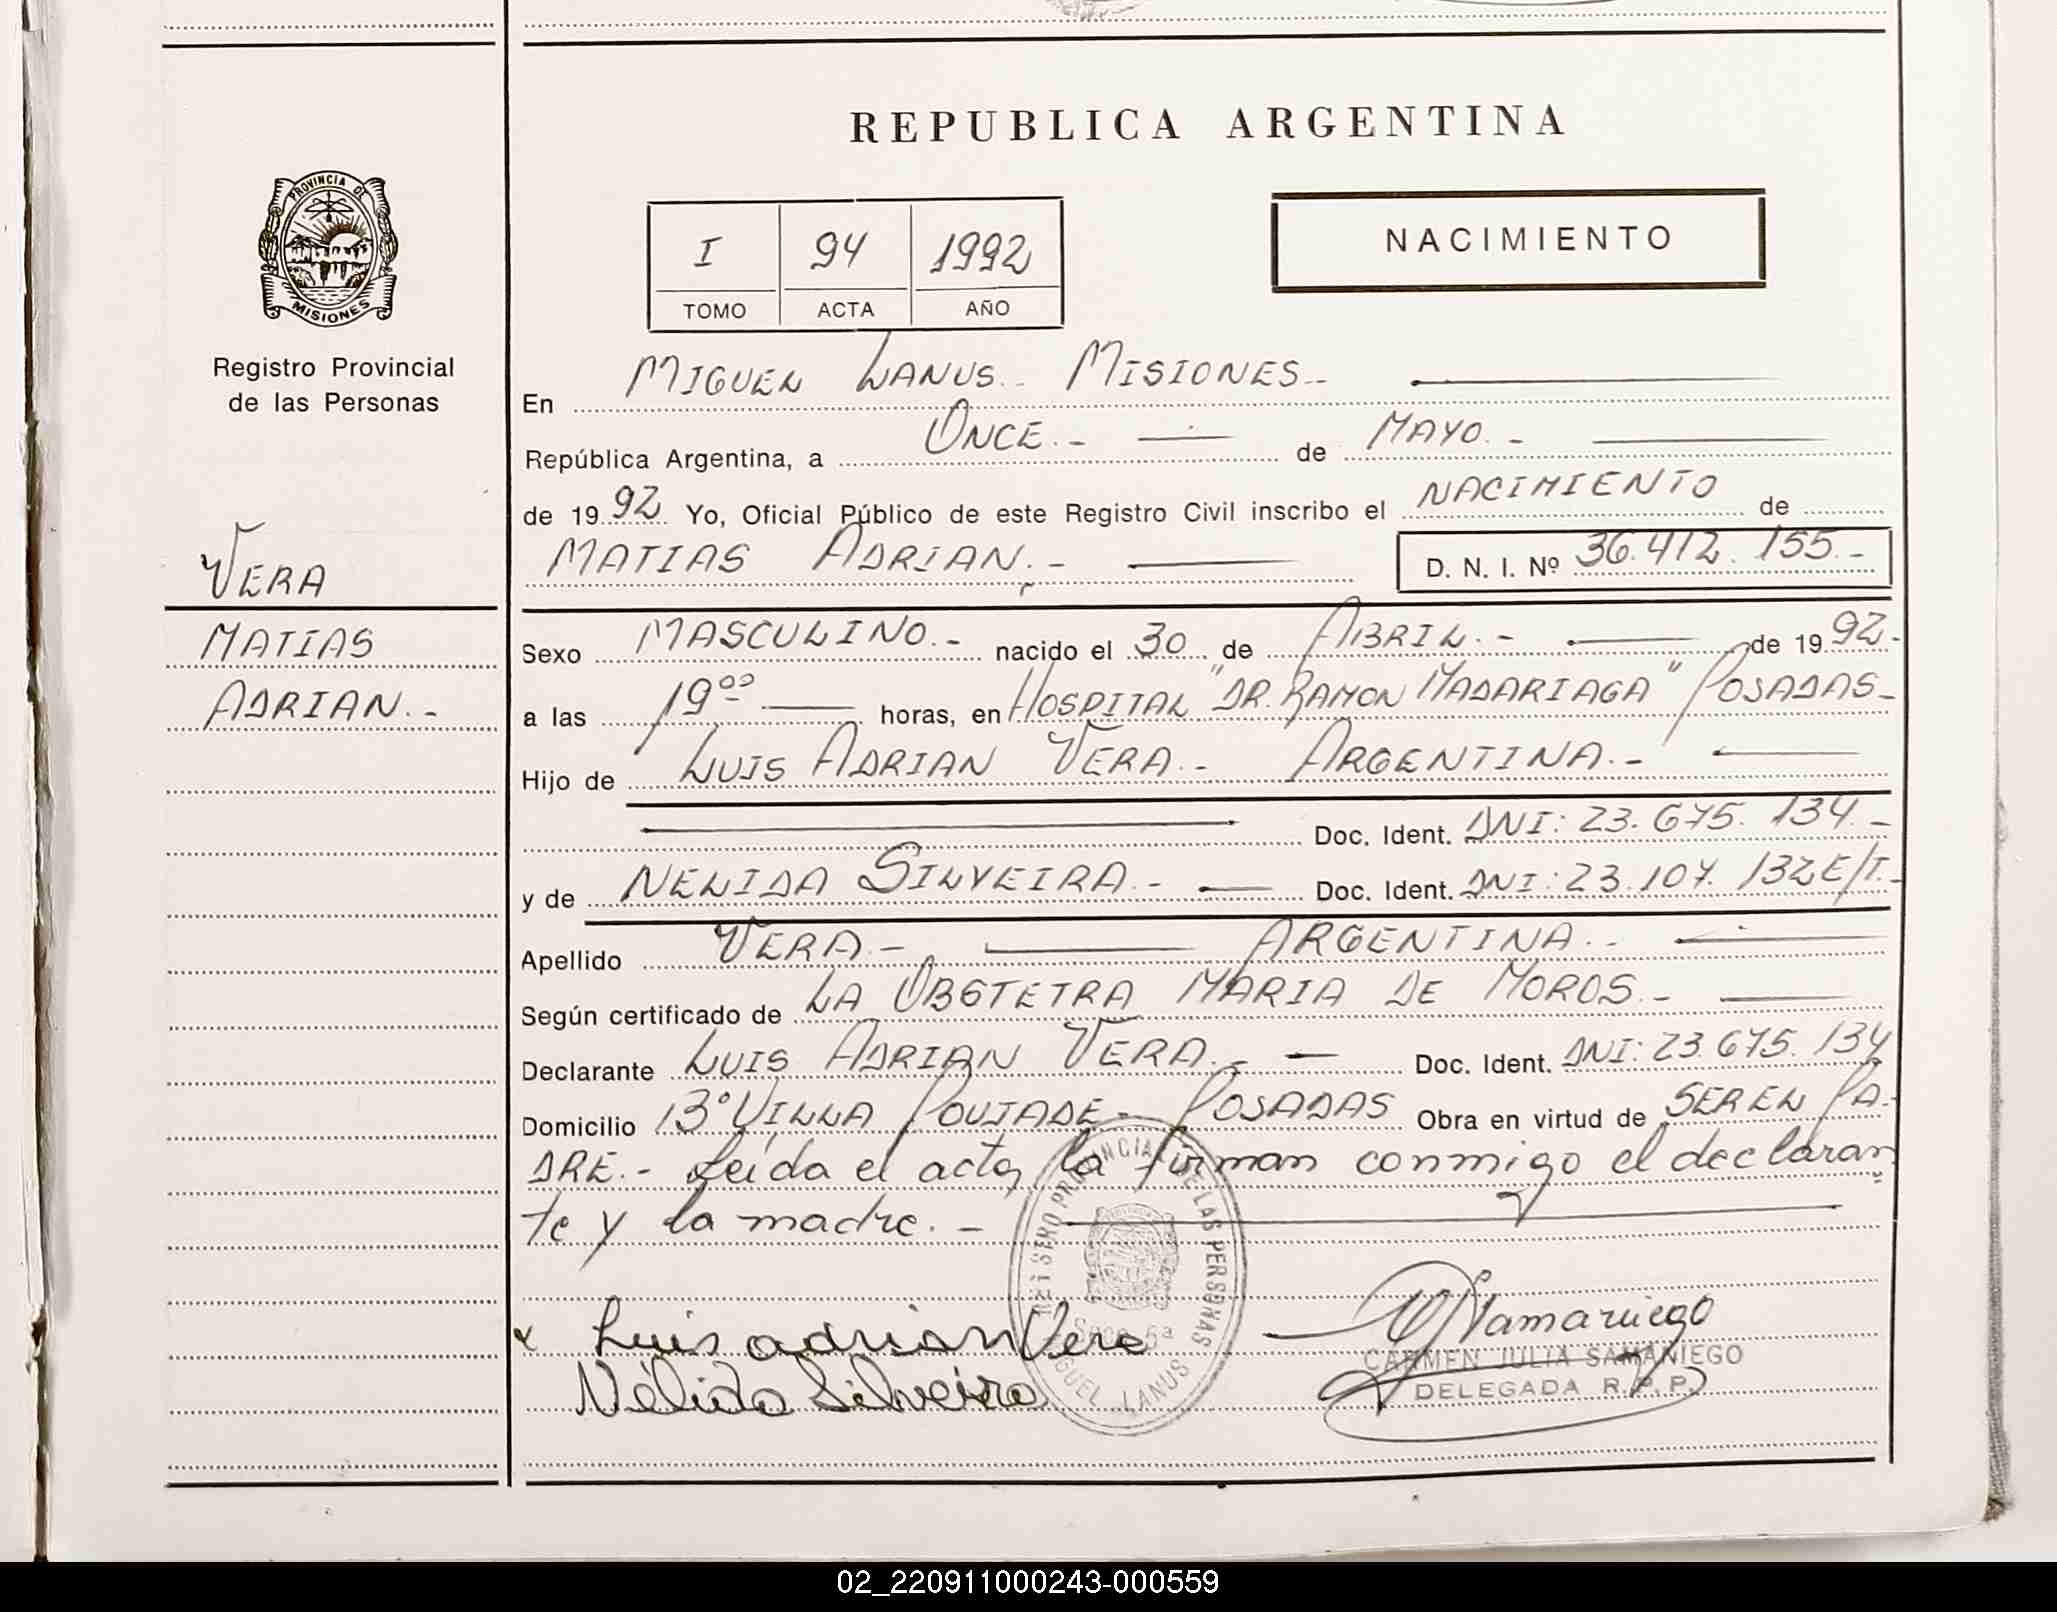 REPUBLICA ARGENTINA
PROVINCIA DE
MISIONES
I 94 1992
TOMO ACTA AÑO
NACIMIENTO
Registro Provincial
de las Personas
VERA
MATIAS
ADRIAN.-
En MIGUEL LANUS.- MISIONES.-
República Argentina, a ONCE.- de MAYO.-
de 1992 Yo, Oficial Público de este Registro Civil inscribo el NACIMIENTO de
MATIAS ADRIAN.- D. N. I. Nº 36.412.155.-
Sexo MASCULINO.- nacido el 30 de ABRIL.- de 1992.-
a las 19ºº horas, en HOSPITAL "DR. RAMON MADARIAGA" POSADAS-
Hijo de LUIS ADRIAN VERA.- ARGENTINA.-
Doc. Ident. DNI: 23.675.134.-
y de NELIDA SILVEIRA.- Doc. Ident. DNI: 23.107.132 E/T.-
Apellido VERA.- ARGENTINA.-
Según certificado de LA OBSTETRA MARIA DE MOROS.-
Declarante LUIS ADRIAN VERA.- Doc. Ident. DNI: 23.675.134
Domicilio 13º VILLA POUJADE- POSADAS Obra en virtud de SER EL PA-
DRE.- Leída el acta, la firman conmigo el declaran
te y la madre.-
REGISTRO PROVINCIAL DE LAS PERSONAS
Secc. 5ª
MIGUEL LANUS
Luis adrian Vera
Nélida Silveira
CJSamaniego
CARMEN JULIA SAMANIEGO
DELEGADA R.P.P.
02_220911000243-000559